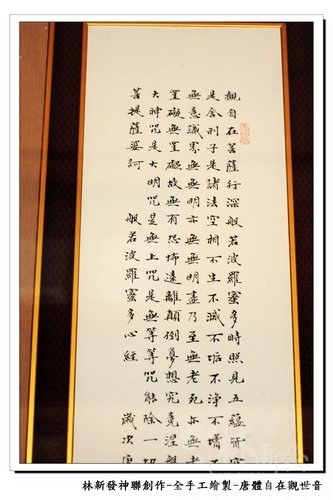 觀自在菩薩行深般若波羅蜜多時照見五蘊皆空
是舍利子是諸法空相不生不滅不垢不淨不增
無意識界無無明亦無無明盡乃至無老死亦無老
罣礙無罣礙故無有恐怖遠離顛倒夢想究竟涅槃
大神咒是大明咒是無上咒是無等等咒能除一切
菩提薩婆訶 般若波羅蜜多心經 歲次
林新發神聯創作-全手工繪製-唐體自在觀世音